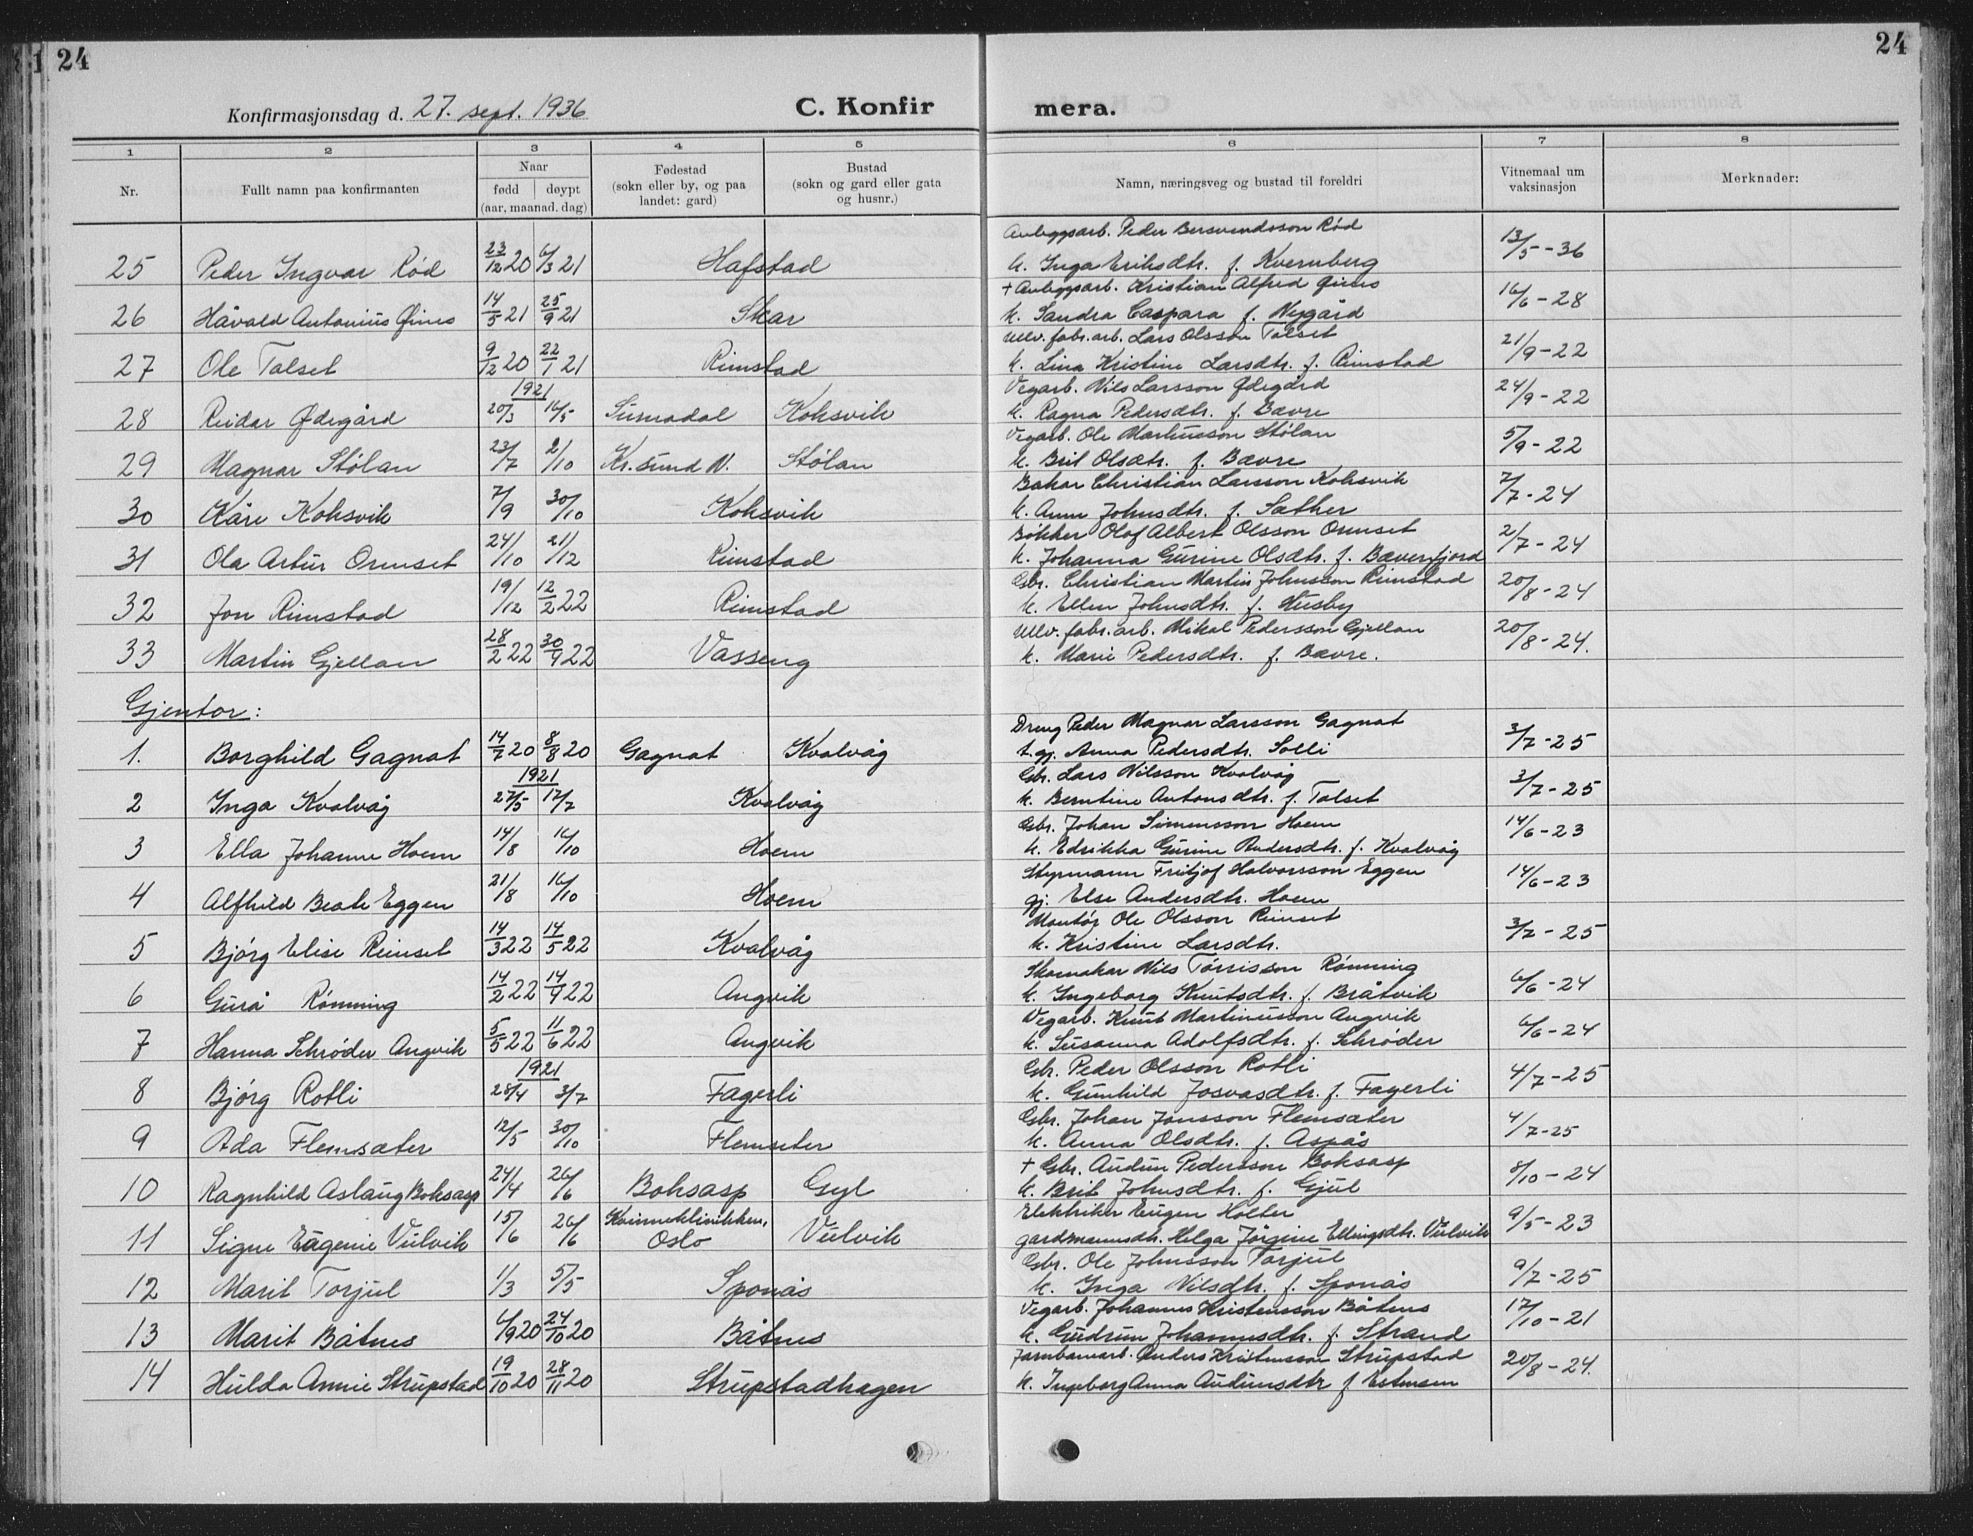 24
24
Konfirmasjonsdag d. 27. sept. 1936
C. Konfir
mera.
1 2 3 4 5 6 7 8
Nr.
Fullt namn paa konfirmanten
Naar
fødd døypt
(aar, maanad, dag)
Fødestad
(sokn eller by, og paa
landet: gard)
Bustad
(sokn og gard eller gata
og husnr.)
Namn, næringsveg og bustad til foreldri
Vitnemaal um
vaksinasjon
Merknader:
Anleggsarb. Peder Bersvendsson Rød
25 Peder Ingvar Rød 23/12 20 6/3 21 Hafstad 13/5-36
k. Inga Eriksdtr. f. Kvernberg
+ Anleggsarb. Kristian Alfred Øines
26 Håvald Antonius Øines 14/5 21 25/9 21 Skar 16/6-28
k. Sandra Caspara f. Nygård
Ullv. fabr. arb. Lars Olsson Talset
27 Ole Talset 9/12 20 22/1 21 Rimstad 21/9-22
k. Lina Kristine Larsdtr. f. Rimstad
1921
Vegarb. Nils Larsson Ødegård
28 Reidar Ødegård 20/3 16/5 Surnadal Koksvik 24/9-22
k. Ragna Pedersdtr. f. Bævre
Vegarb. Ole Martinusson Stølan
29 Magnar Stølan 23/7 2/10 Kr.sund N. Stølan 5/9-22
k. Brit Olsdtr. f. Bævre
Bakar Christian Larsson Koksvik
30 Kåre Koksvik 7/9 30/10 Koksvik 7/7-24
k. Anne Johnsdtr. f. Sæther
Bøkker Olof Albert Olsson Ormset
31 Ola Artur Ormset 24/10 21/12 Rimstad 2/7-24
k. Johanna Gurine Olsdtr. f. Bæverfjord
Gbr. Christian Martin Johnsson Rimstad
32 Jon Rimstad 19/12 12/2 22 Rimstad 20/8-24
k. Ellen Johnsdtr. f. Husby
Ullv. fabr. arb. Mikal Pedersson Gjellan
33 Martin Gjellan 28/2 22 30/9 22 Vasseng 20/8-24.
k. Marie Pedersdtr. f. Bævre.
Gjentor:
Dreng Peder Magnar Larsson Gagnat
1. Borghild Gagnat 14/7 20 8/8 20 Gagnat Kvalvåg 3/7-25
t. gj. Anna Pedersdtr. Solli
1921
Gbr. Lars Nilsson Kvalvåg
2 Inga Kvalvåg 27/5 17/7 Kvalvåg 3/7-25
k. Berntine Antonsdtr. f. Talset
Gbr. Johan Simensson Hoem
3 Ella Johanne Hoem 14/8 16/10 Hoem 14/6-23
k. Edrikka Gurine Andersdtr. f. Kvalvåg
Styrmann Fritjof Halvorsson Eggen
4 Alfhild Beate Eggen 21/8 16/10 Hoem 14/6-23
gj. Else Andersdtr. Hoem
Montør Ole Olsson Reinset
5 Bjørg Elise Reinset 14/3 22 14/5 22 Kvalvåg 3/7-25
k. Kristine Larsdtr.
Skomakar Nils Tørrisson Rønning
6 Guro Rønning 14/2 22 14/9 22 Angvik 6/6-24
k. Ingeborg Knutsdtr. f. Bråtvik
Vegarb. Knut Martinusson Angvik
7 Hanna Schrøder Angvik 5/5 22 11/6 22 Angvik 6/6-24
k. Susanna Adolfsdtr. f. Schrøder
1921
Gbr. Peder Olsson Rotli
8 Bjørg Rotli 28/4 3/7 Fagerli 4/7-25
k. Gunhild Josvasdtr. f. Fagerli
Gbr. Johan Jonsson Flemsæter
9 Ada Flemsæter 12/5 30/10 Flemseter 4/7-25
k. Anna Olsdtr. f. Aspås
+ Gbr. Audun Pedersson Boksasp
10 Ragnhild Aslaug Boksasp 24/4 26/6 Boksasp Gyl 8/10-24
k. Brit Johnsdtr. f. Gjul
Elektriker Eugen Holter
11 Signe Eugenie Vulvik 15/6 26/6 Kvinneklinikken, Oslo Vulvik 9/5-23
gardmannsdtr. Helga Jørgine Ellingsdtr. Vulvik
Gbr. Ole Johnsson Torjul
12 Marit Torjul 1/3 5/5 Sponås 9/7-25
k. Inga Nilsdtr. f. Sponås
Vegarb. Johannes Kristensson Båtnes
13 Marit Båtnes 6/9 20 24/10 20 Båtnes 17/10-21
k. Gudrun Johannesdtr. f. Strand
Jarnbanearb. Anders Kristensson Strupstad
14 Hulda Annie Strupstad 19/10 20 28/11 20 Strupstadhagen 20/8-24.
k. Ingeborg Anna Audunsdtr f. Estensen